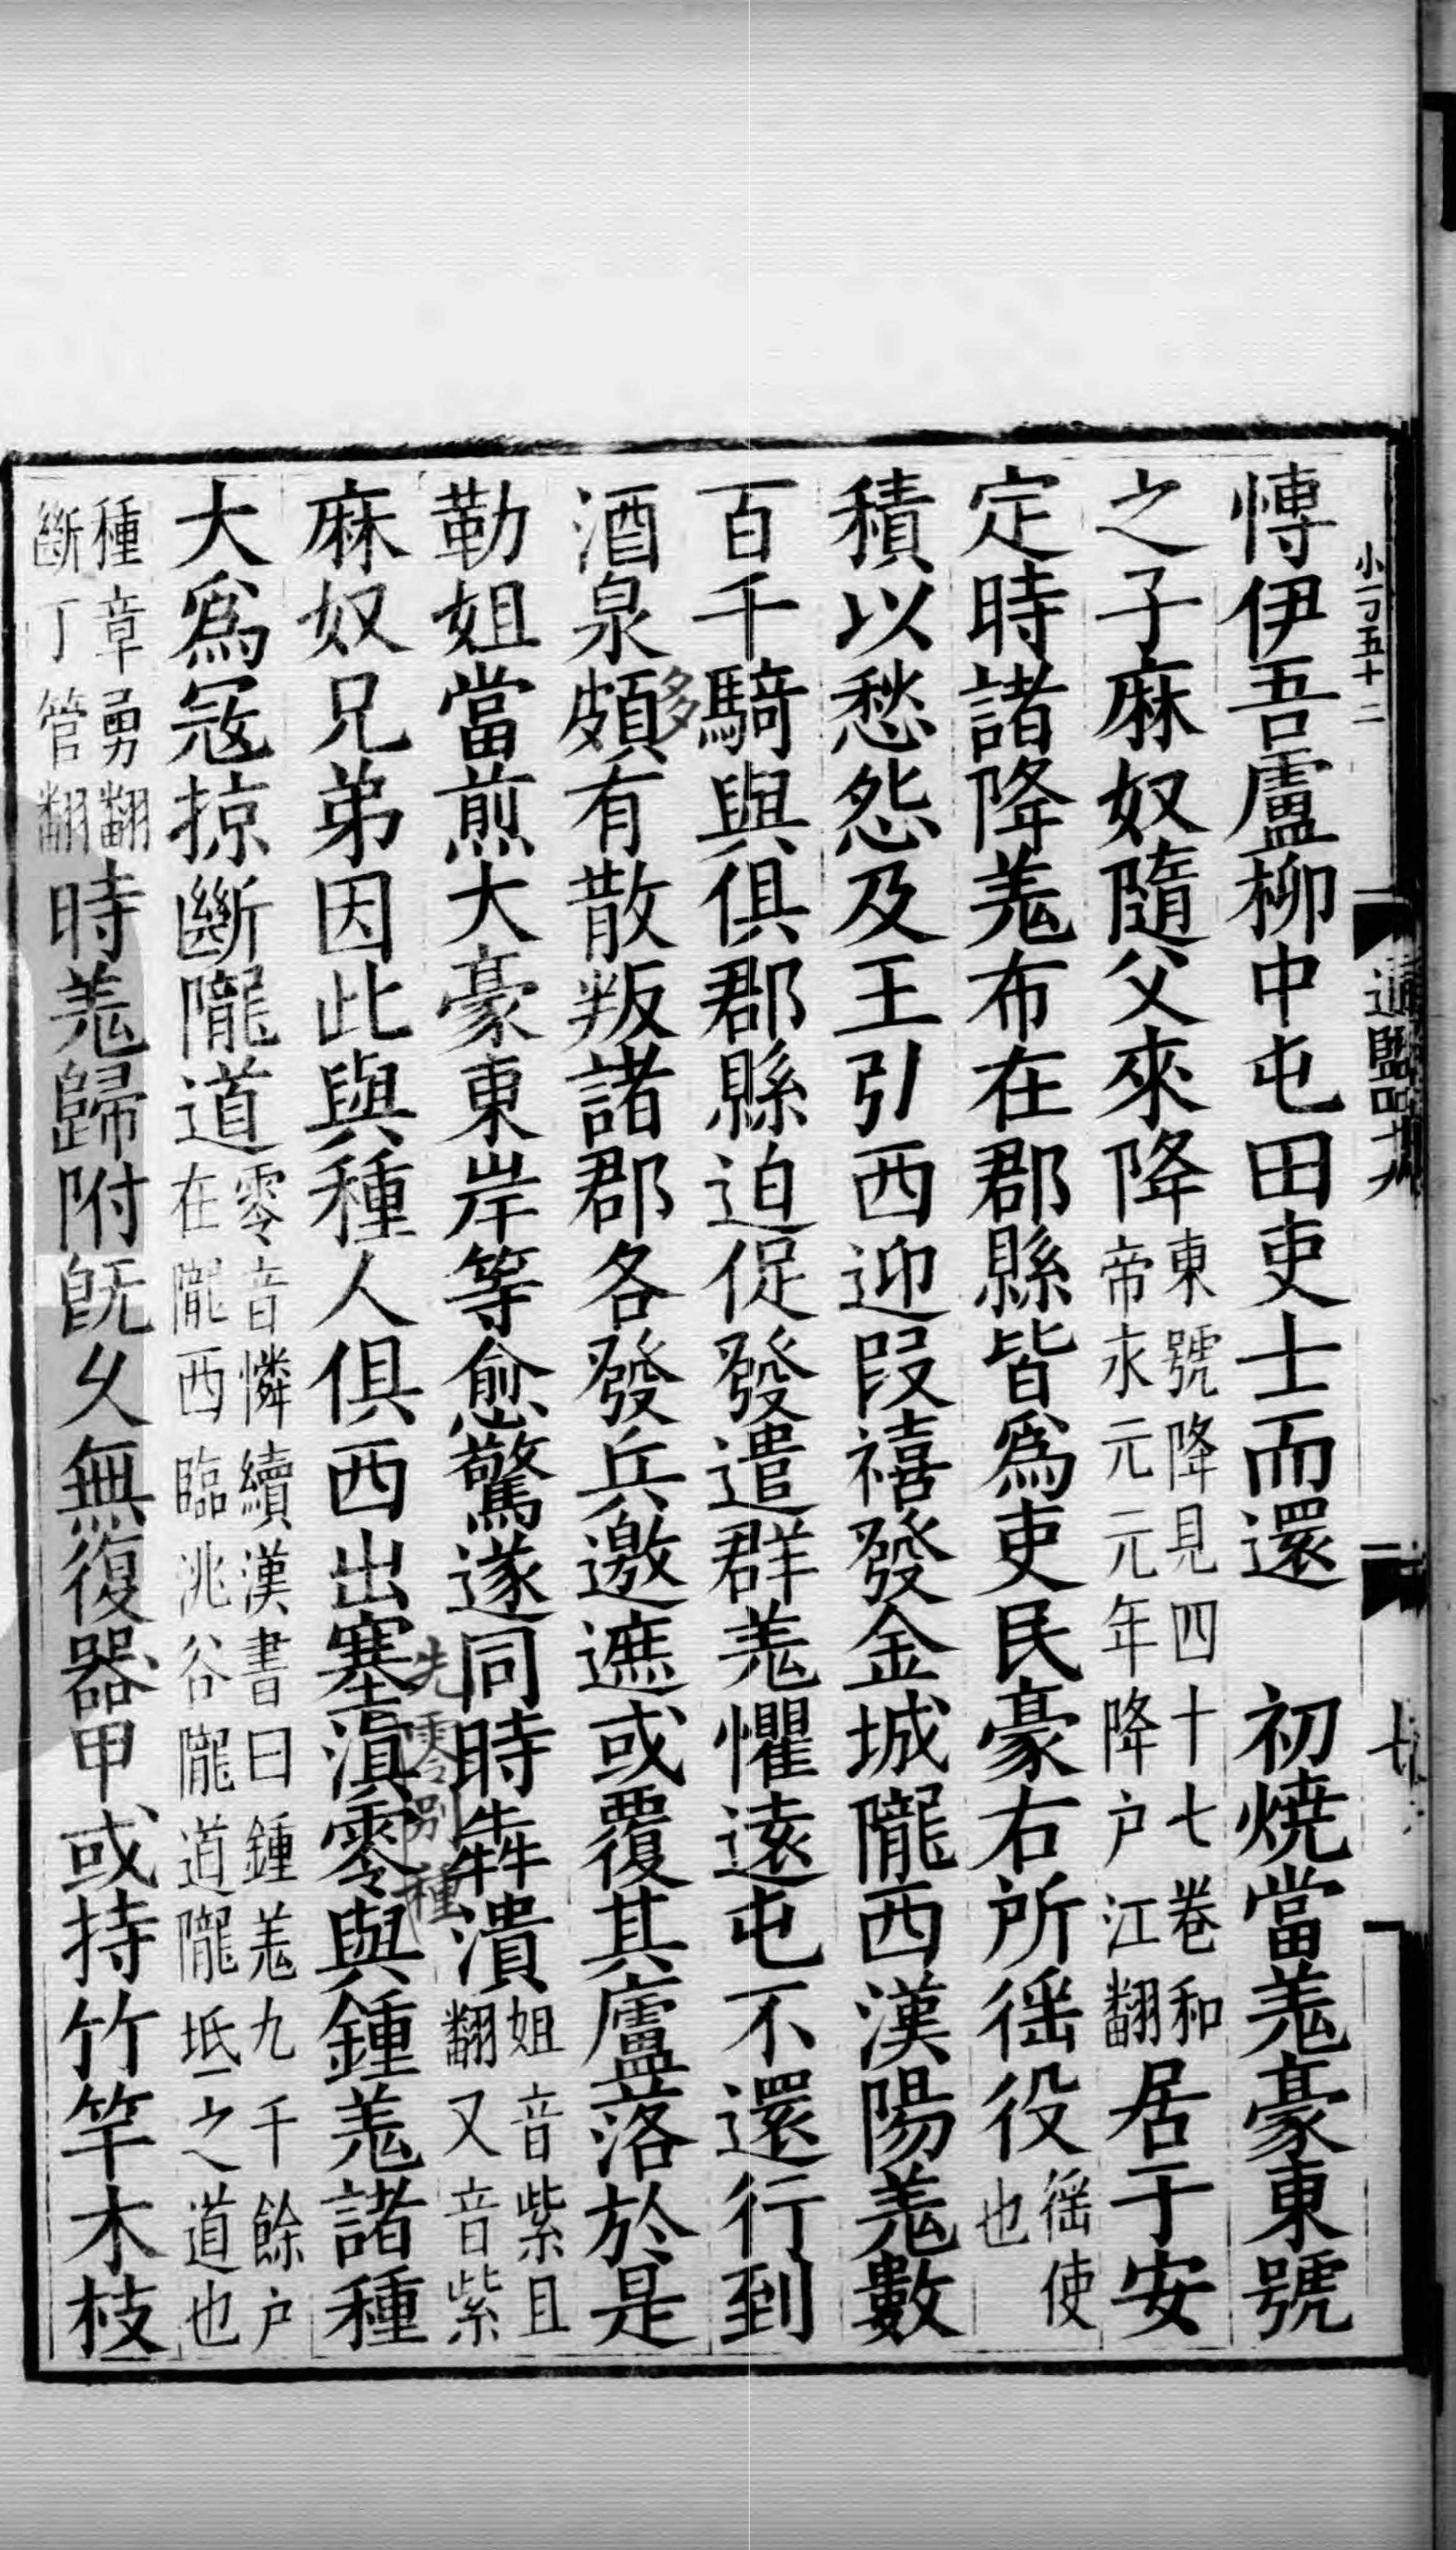 慱伊吾盧柳中屯田吏士而還　初燒當羗豪東號
之子麻奴隨父來降東號降見四十七巻和帝永元元年降户江翻居于安
定時諸降羗布在郡縣皆為吏民豪右所徭役徭使也
積以愁怨及王引西迎段禧發金城隴西漢陽羗數
百千騎與俱郡縣迫促發遣群羗懼遠屯不還行到
酒泉頗有散叛諸郡各發兵邀遮或覆其廬落於是
多
勒姐當煎大豪東岸等愈驚遂同時犇潰姐音紫且翻又音紫
先零别種
麻奴兄弟因此與種人俱西出塞滇零與鍾羗諸種
大為冦掠斷隴道零音憐續漢書曰鍾羗九千餘户在隴西臨洮谷隴道隴坻之道也
種章勇翻斷丁管翻時羗歸附旣久無復器甲或持竹竿木枝
小一丁五十二
通鑑四十九
七